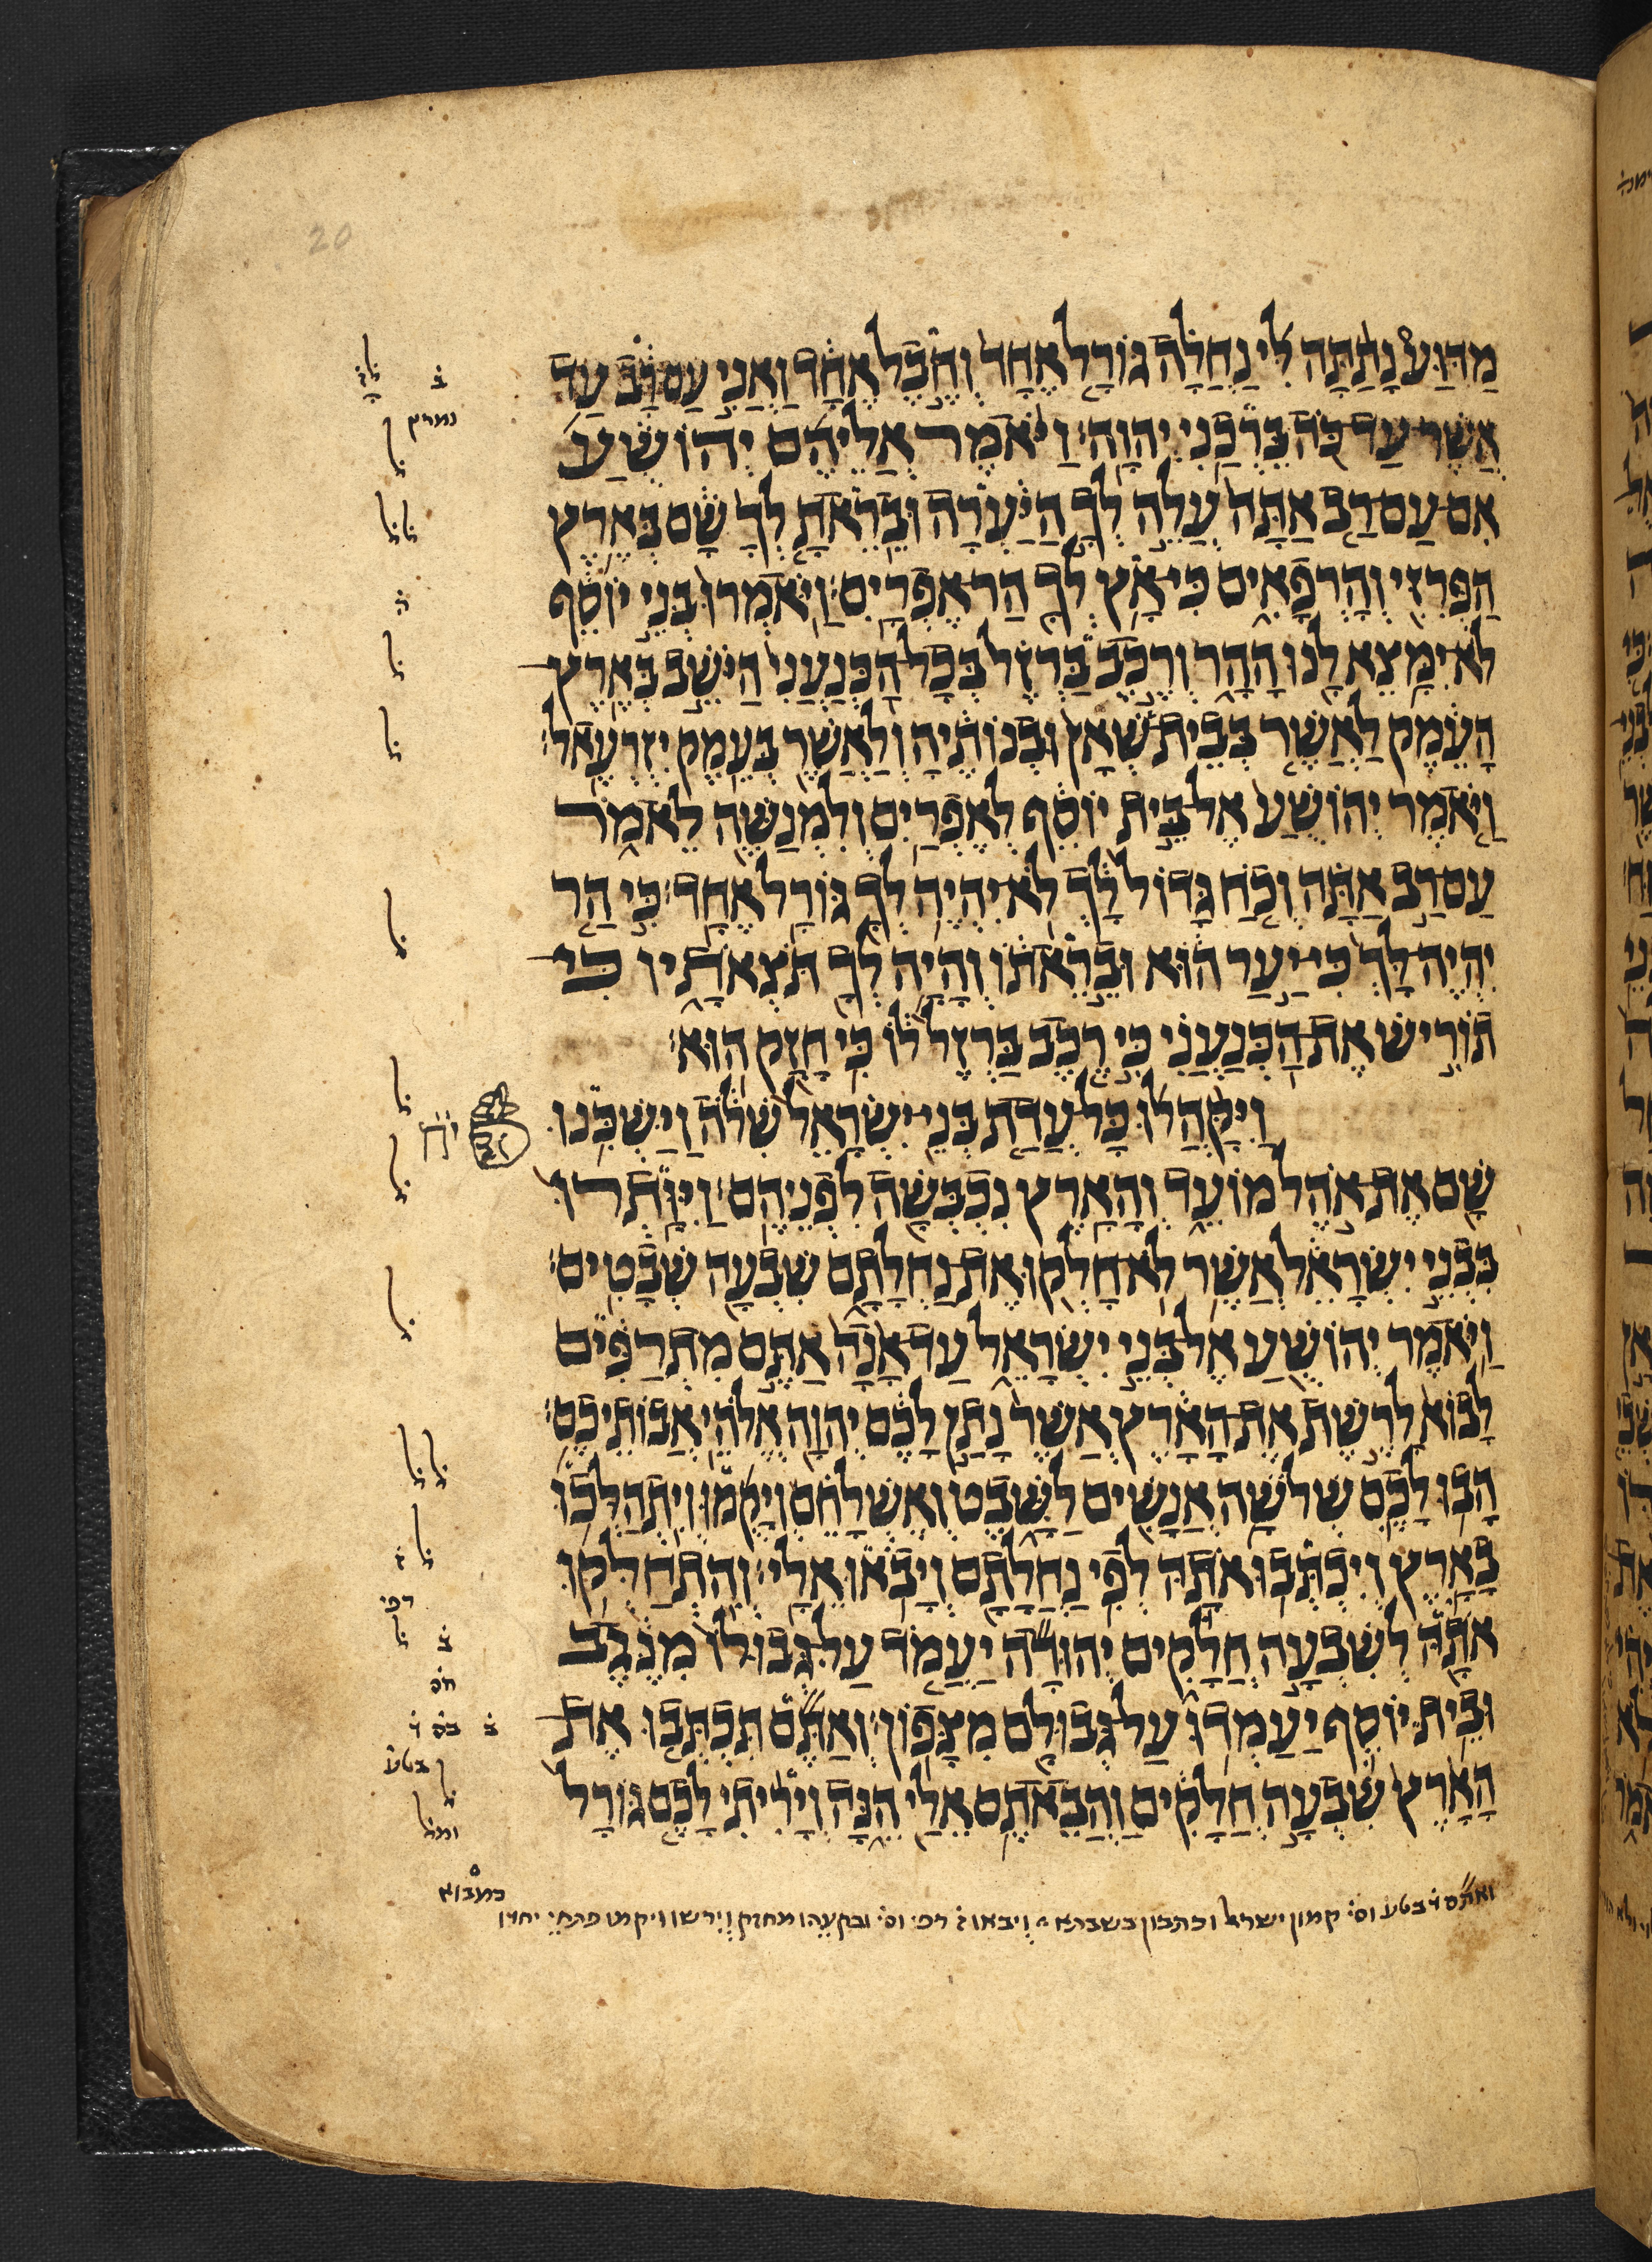 20
מַדּוּעַ נָתַתָּה לִּי נַחֲלָה גּוֹרָל אֶחָד וְחֶבֶל אֶחָד וַאֲנִי עַם רָב עַד
אֲשֶׁר עַד כֹּה בֵּרְכַנִי יְהוָה׃ וַיֹּאמֶר אֲלֵיהֶם יְהוֹשֻׁעַ
אִם עַם רַב אַתָּה עֲלֵה לְךָ הַיַּעְרָה וּבֵרֵאתָ לְךָ שָׁם בְּאֶרֶץ
הַפְּרִזִּי וְהָרְפָאִים כִּי אָץ לְךָ הַר אֶפְרָיִם׃ וַיֹּאמְרוּ בְּנֵי יוֹסֵף
לֹא יִמָּצֵא לָנוּ הָהָר וְרֶכֶב בַּרְזֶל בְּכָל הַכְּנַעֲנִי הַיֹּשֵׁב בְּאֶרֶץ
הָעֵמֶק לַאֲשֶׁר בְּבֵית שְׁאָן וּבְנוֹתֶיהָ וְלַאֲשֶׁר בְּעֵמֶק יִזְרְעֶאל׃
וַיֹּאמֶר יְהוֹשֻׁעַ אֶל בֵּית יוֹסֵף לְאֶפְרַיִם וְלִמְנַשֶּׁה לֵאמֹר
עַם רַב אַתָּה וְכֹחַ גָּדוֹל לָךְ לֹא יִהְיֶה לְךָ גּוֹרָל אֶחָד׃ כִּי הַר
יִהְיֶה לָּךְ כִּי יַעַר הוּא וּבֵרֵאתוֹ וְהָיָה לְךָ תֹּצְאֹתָיו כִּי
תוֹרִישׁ אֶת הַכְּנַעֲנִי כִּי רֶכֶב בַּרְזֶל לוֹ כִּי חָזָק הוּא׃
וַיִּקָּהֲלוּ כָּל עֲדַת בְּנֵי יִשְׂרָאֵל שִׁלֹה וַיַּשְׁכִּנוּ
שָׁם אֶת אֹהֶל מוֹעֵד וְהָאָרֶץ נִכְבְּשָׁה לִפְנֵיהֶם׃ וַיִּוָּתְרוּ
בִּבְנֵי יִשְׂרָאֵל אֲשֶׁר לֹא חָלְקוּ אֶת נַחֲלָתָם שִׁבְעָה שְׁבָטִים׃
וַיֹּאמֶר יְהוֹשֻׁעַ אֶל בְּנֵי יִשְׂרָאֵל עַד אָנָה אַתֶּם מִתְרַפִּים
לָבוֹא לָרֶשֶׁת אֶת הָאָרֶץ אֲשֶׁר נָתַן לָכֶם יְהוָה אֱלֹהֵי אֲבוֹתֵיכֶם׃
הָבוּ לָכֶם שְׁלֹשָׁה אֲנָשִׁים לַשָּׁבֶט וְאֶשְׁלָחֵם וְיָקֻמוּ וְיִתְהַלְּכוּ
בָאָרֶץ וְיִכְתְּבוּ אֹתָהּ לְפִי נַחֲלָתָם וְיָבֹאוּ אֵלָי׃ וְהִתְחַלְּקוּ
אֹתָהּ לְשִׁבְעָה חֲלָקִים יְהוּדָה יַעֲמֹד עַל גְּבוּלוֹ מִנֶּגֶב
וּבֵית יוֹסֵף יַעַמְדוּ עַל גְּבוּלָם מִצָּפוֹן׃ וְאַתֶּם תִּכְתְּבוּ אֶת
הָאָרֶץ שִׁבְעָה חֲלָקִים וַהֲבֵאתֶם אֵלַי הֵנָּה וְיָרִיתִי לָכֶם גּוֹרָל
ואתם בטע וס׳ קמון ישראל וכתבון בשברא ויבאו רפי וס׳ ובקעהו מחזק וירשו ויקמו